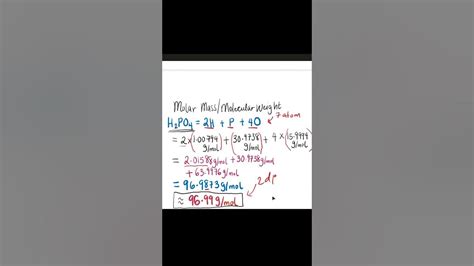 Molar Mass/Molecular Weight
H₂PO₄ = 2H + P + 4O
7 atom
= 2 × (1.00794 g/mol) + (30.9738 g/mol) + 4 × (15.9994 g/mol)
= 2.01588 g/mol + 30.9738 g/mol
+ 63.9976 g/mol
= 96.9873 g/mol
2 dp
≈ 96.99 g/mol